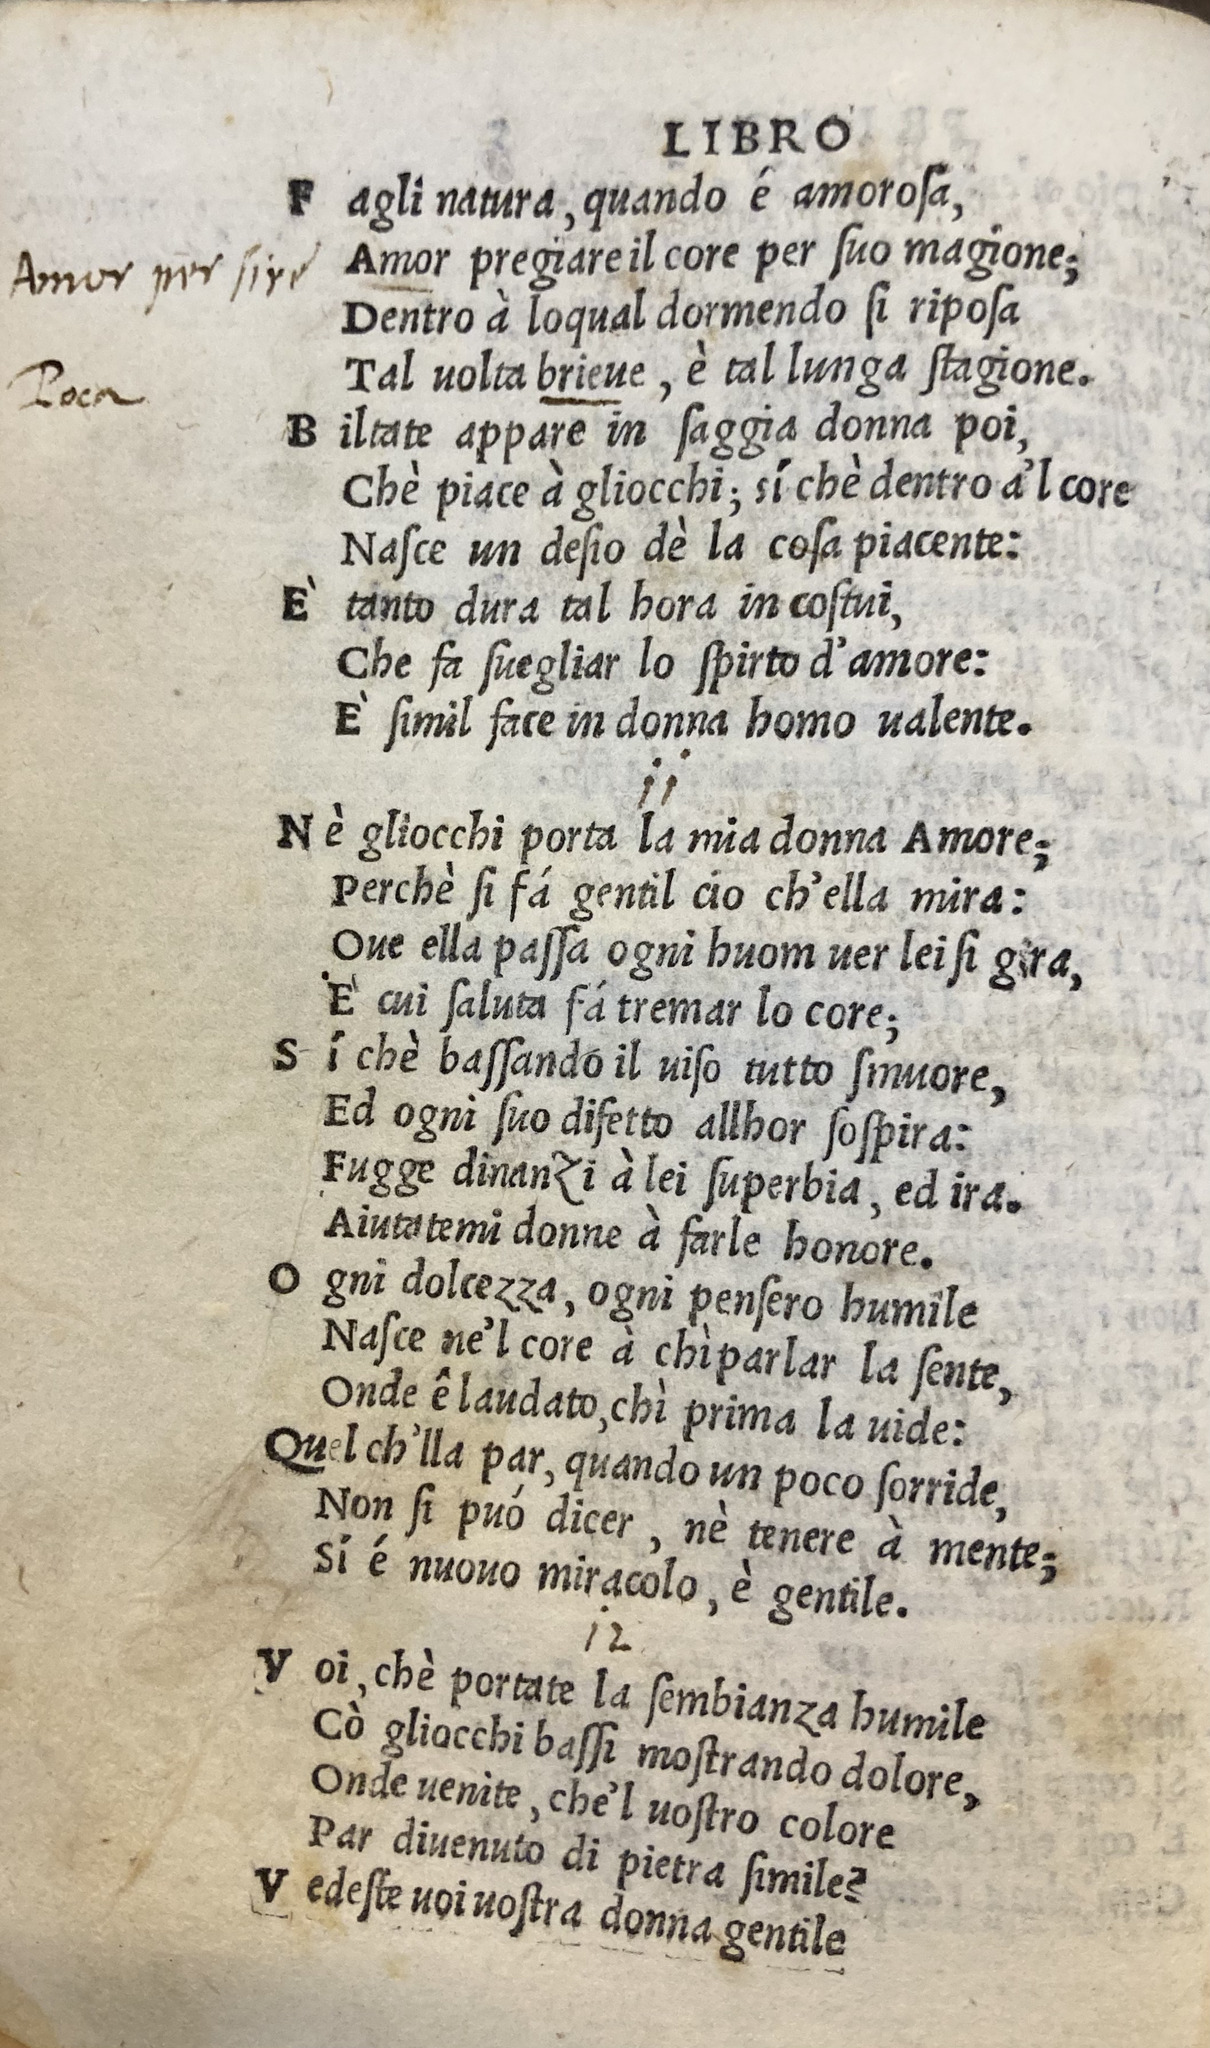 LIBRO
Fagli natura, quando é amoroſa,
Amor per sire
Amor pregiare il core per ſuo magione;
Dentro à loqual dormendo ſi ripoſa
Tal uolta brieue, è tal lunga ſtagione.
Poca
Biltate appare in ſaggia donna poi,
Chè piace à gliocchi; sí chè dentro a'l core
Naſce un deſio dè la coſa piacente:
È tanto dura tal hora in coſtui,
Che fa ſuegliar lo ſpirto d'amore:
È ſimil face in donna homo ualente.
11
Nè gliocchi porta la mia donna Amore;
Perchè ſi fá gentil cio ch'ella mira:
Oue ella paſſa ogni huom uer lei ſi gira,
È cui ſaluta fá tremar lo core;
Sí chè baſſando il uiſo tutto ſmuore,
Ed ogni ſuo difetto allhor ſoſpira:
Fugge dinanzi à lei ſuperbia, ed ira.
Aiutatemi donne à farle honore.
Ogni dolcezza, ogni penſero humile
Naſce ne'l core à chì parlar la ſente,
Onde ê laudato, chì prima la uide:
Quel ch'lla par, quando un poco ſorride,
Non ſi puó dicer, nè tenere à mente;
Sí é nuouo miracolo, è gentile.
12
Voi, chè portate la ſembianza humile
Cò gliocchi baſſi moſtrando dolore,
Onde uenite, che'l uoſtro colore
Par diuenuto di pietra ſimile?
Vedeſte uoi uoſtra donna gentile